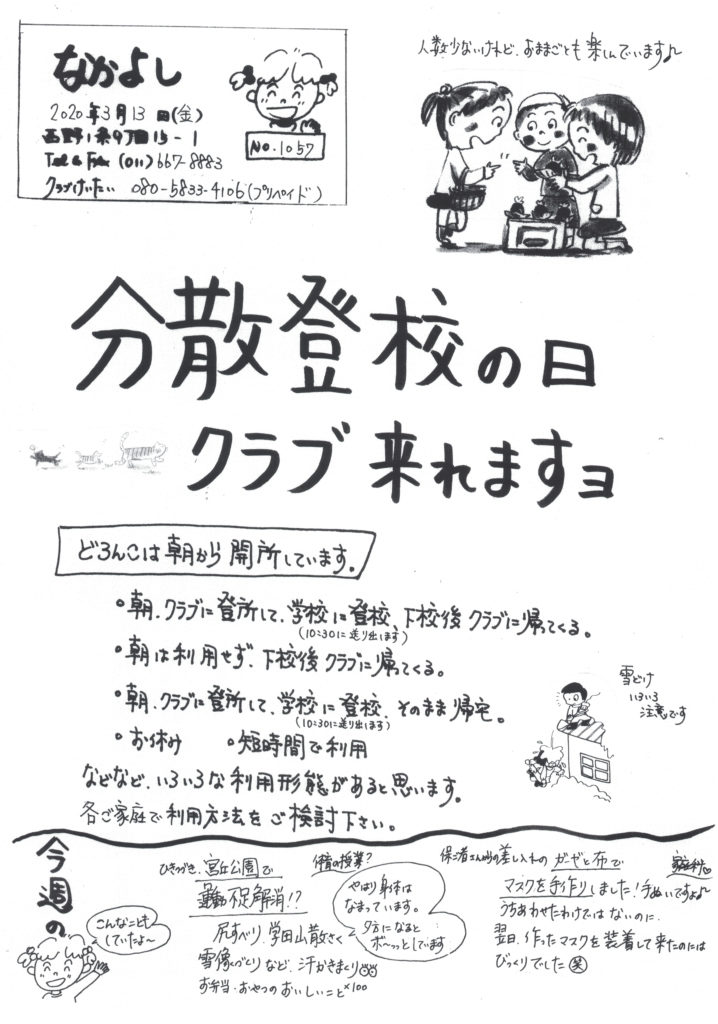 なかよし
2020年3月13日(金)
西野1条9丁目15-1
Tel & Fax (011) 667-8883
クラブけいたい 080-5833-4106(プリペイド)
NO.1057
人数少ないけれど、おままごとも楽しんでいます♪
分散登校の日
クラブ来れますヨ
どろんこは朝から開所しています。
•朝、クラブに登所して、学校に登校、下校後クラブに帰ってくる。
(10:30に送り出します)
•朝は利用せず、下校後クラブに帰ってくる。
•朝、クラブに登所して、学校に登校、そのまま帰宅。
(10:30に送り出します)
•お休み •短時間で利用
などなど、いろいろな利用形態があると思います。
各ご家庭で利用方法をご検討下さい。
雪どけ
いろいろ
注意です
今週の
こんなことも
していたよ~
ひきつづき、宮丘公園で
運動不足解消!?
尻すべり、学田山散さく
雪像づくりなど、汗かきまくり
お弁当・おやつのおいしいこと×100
体育の授業?
やはり身体は
なまっています。
夕方になると
ボ〜ッっとしています
保ご者さんからの差し入れの ガーゼと布で
マスクを手作りしました!手ぬいですよ♪
うちあわせたわけではないのに、
翌日、作ったマスクを装着して来たのには
びっくりでした(笑)
家庭科♡